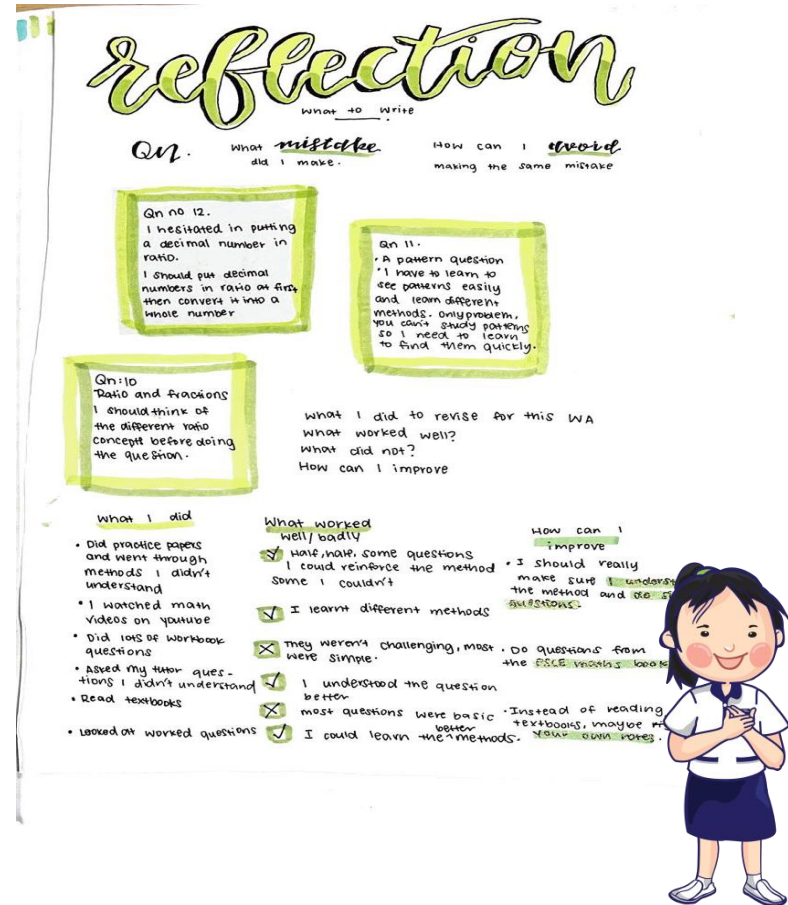 reflection
What to write
Qn.
What mistake
did I make.
How can I avoid
making the same mistake
Qn no 12.
I hesitated in putting
a decimal number in
ratio.
I should put decimal
numbers in ratio at first
then convert it into a
whole number
Qn 11.
• A pattern question
• I have to learn to
see patterns easily
and learn different
methods. Only problem,
you can't study patterns
so I need to learn
to find them quickly.
Qn:10
Ratio and fractions
I should think of
the different ratio
concepts before doing
the question.
What I did to revise for this WA
What worked well?
What did not?
How can I improve
What I did
• Did practice papers
and went through
methods I didn't
understand
• I watched math
videos on youtube
• Did lots of workbook
questions
• Asked my tutor ques-
tions I didn't understand
• Read textbooks
• Looked at worked questions
What worked
well/badly
Half, half, some questions
I could reinforce the method
some I couldn't
I learnt different methods
They weren't challenging, most
were simple.
I understood the question
better
most questions were basic
I could learn the better methods.
How can I
improve
• I should really
make sure I underst
the method and do
questions.
• Do questions from
the PSLE maths book
• Instead of reading
textbooks, maybe
your own notes.